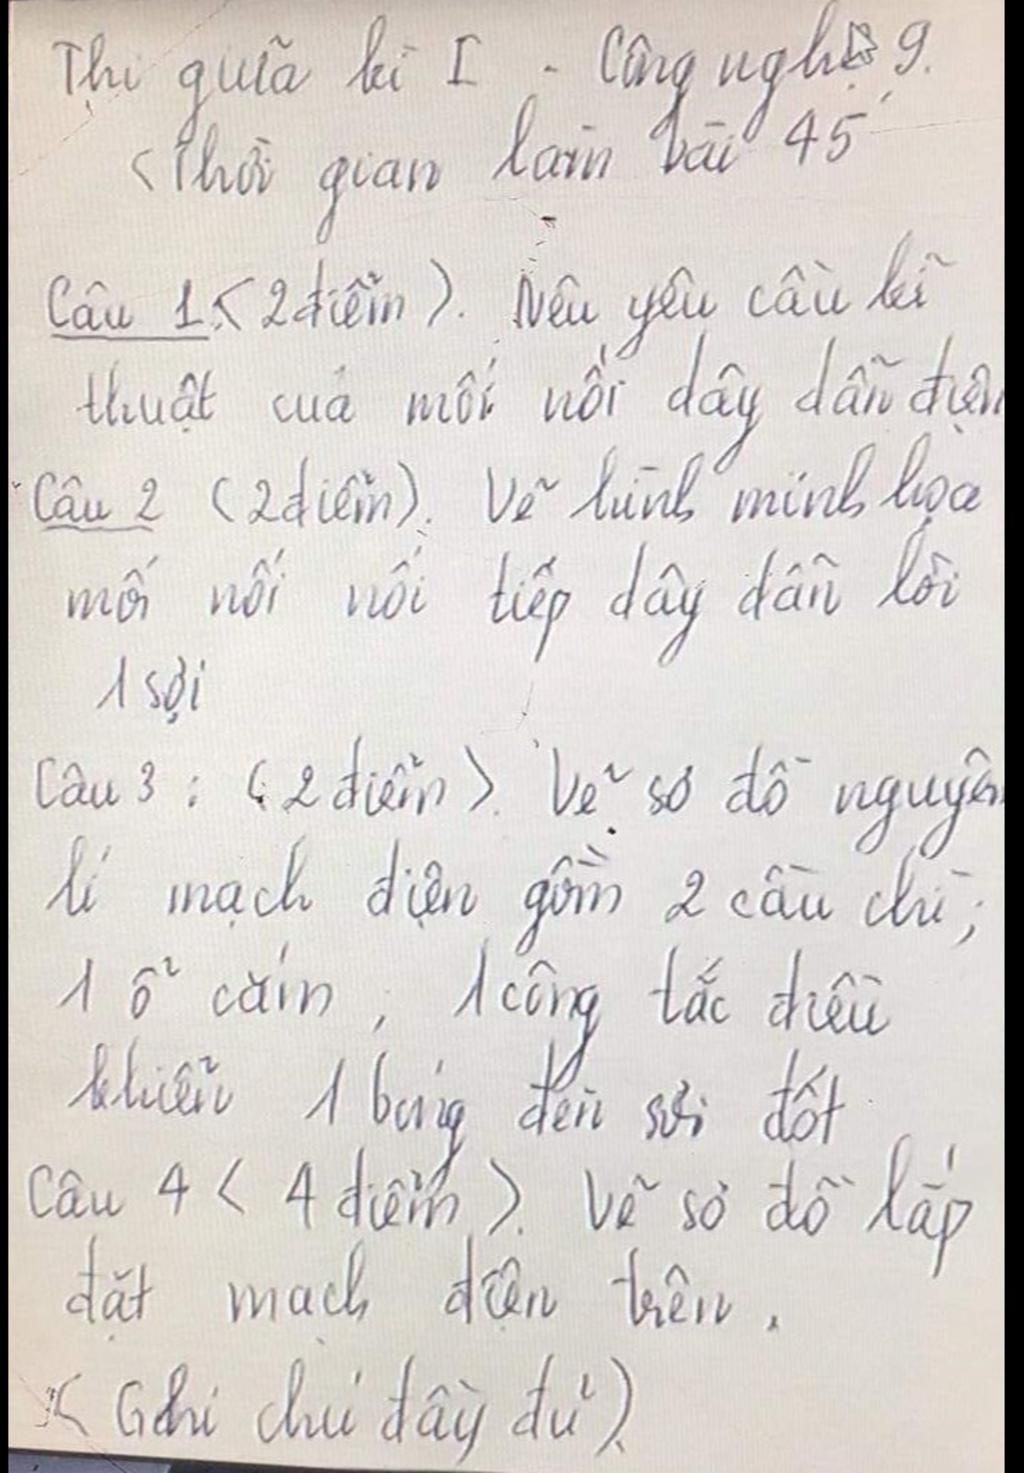 Thi giữa kì I - Công nghệ 9.
(Thời gian làm bài 45'
Câu 1 (2 điểm). Nêu yêu cầu kĩ
thuật của mối nối dây dẫn điện
Câu 2 (2 điểm). Vẽ hình minh họa
mối nối nối tiếp dây dẫn lõi
1 sợi
Câu 3 : (2 điểm). Vẽ sơ đồ nguyên
lí mạch điện gồm 2 cầu chì ;
1 ổ cắm ; 1 công tắc điều
khiển 1 bóng đèn sợi đốt
Câu 4 ( 4 điểm). Vẽ sơ đồ lắp
đặt mạch điện trên.
( Ghi chú đầy đủ )